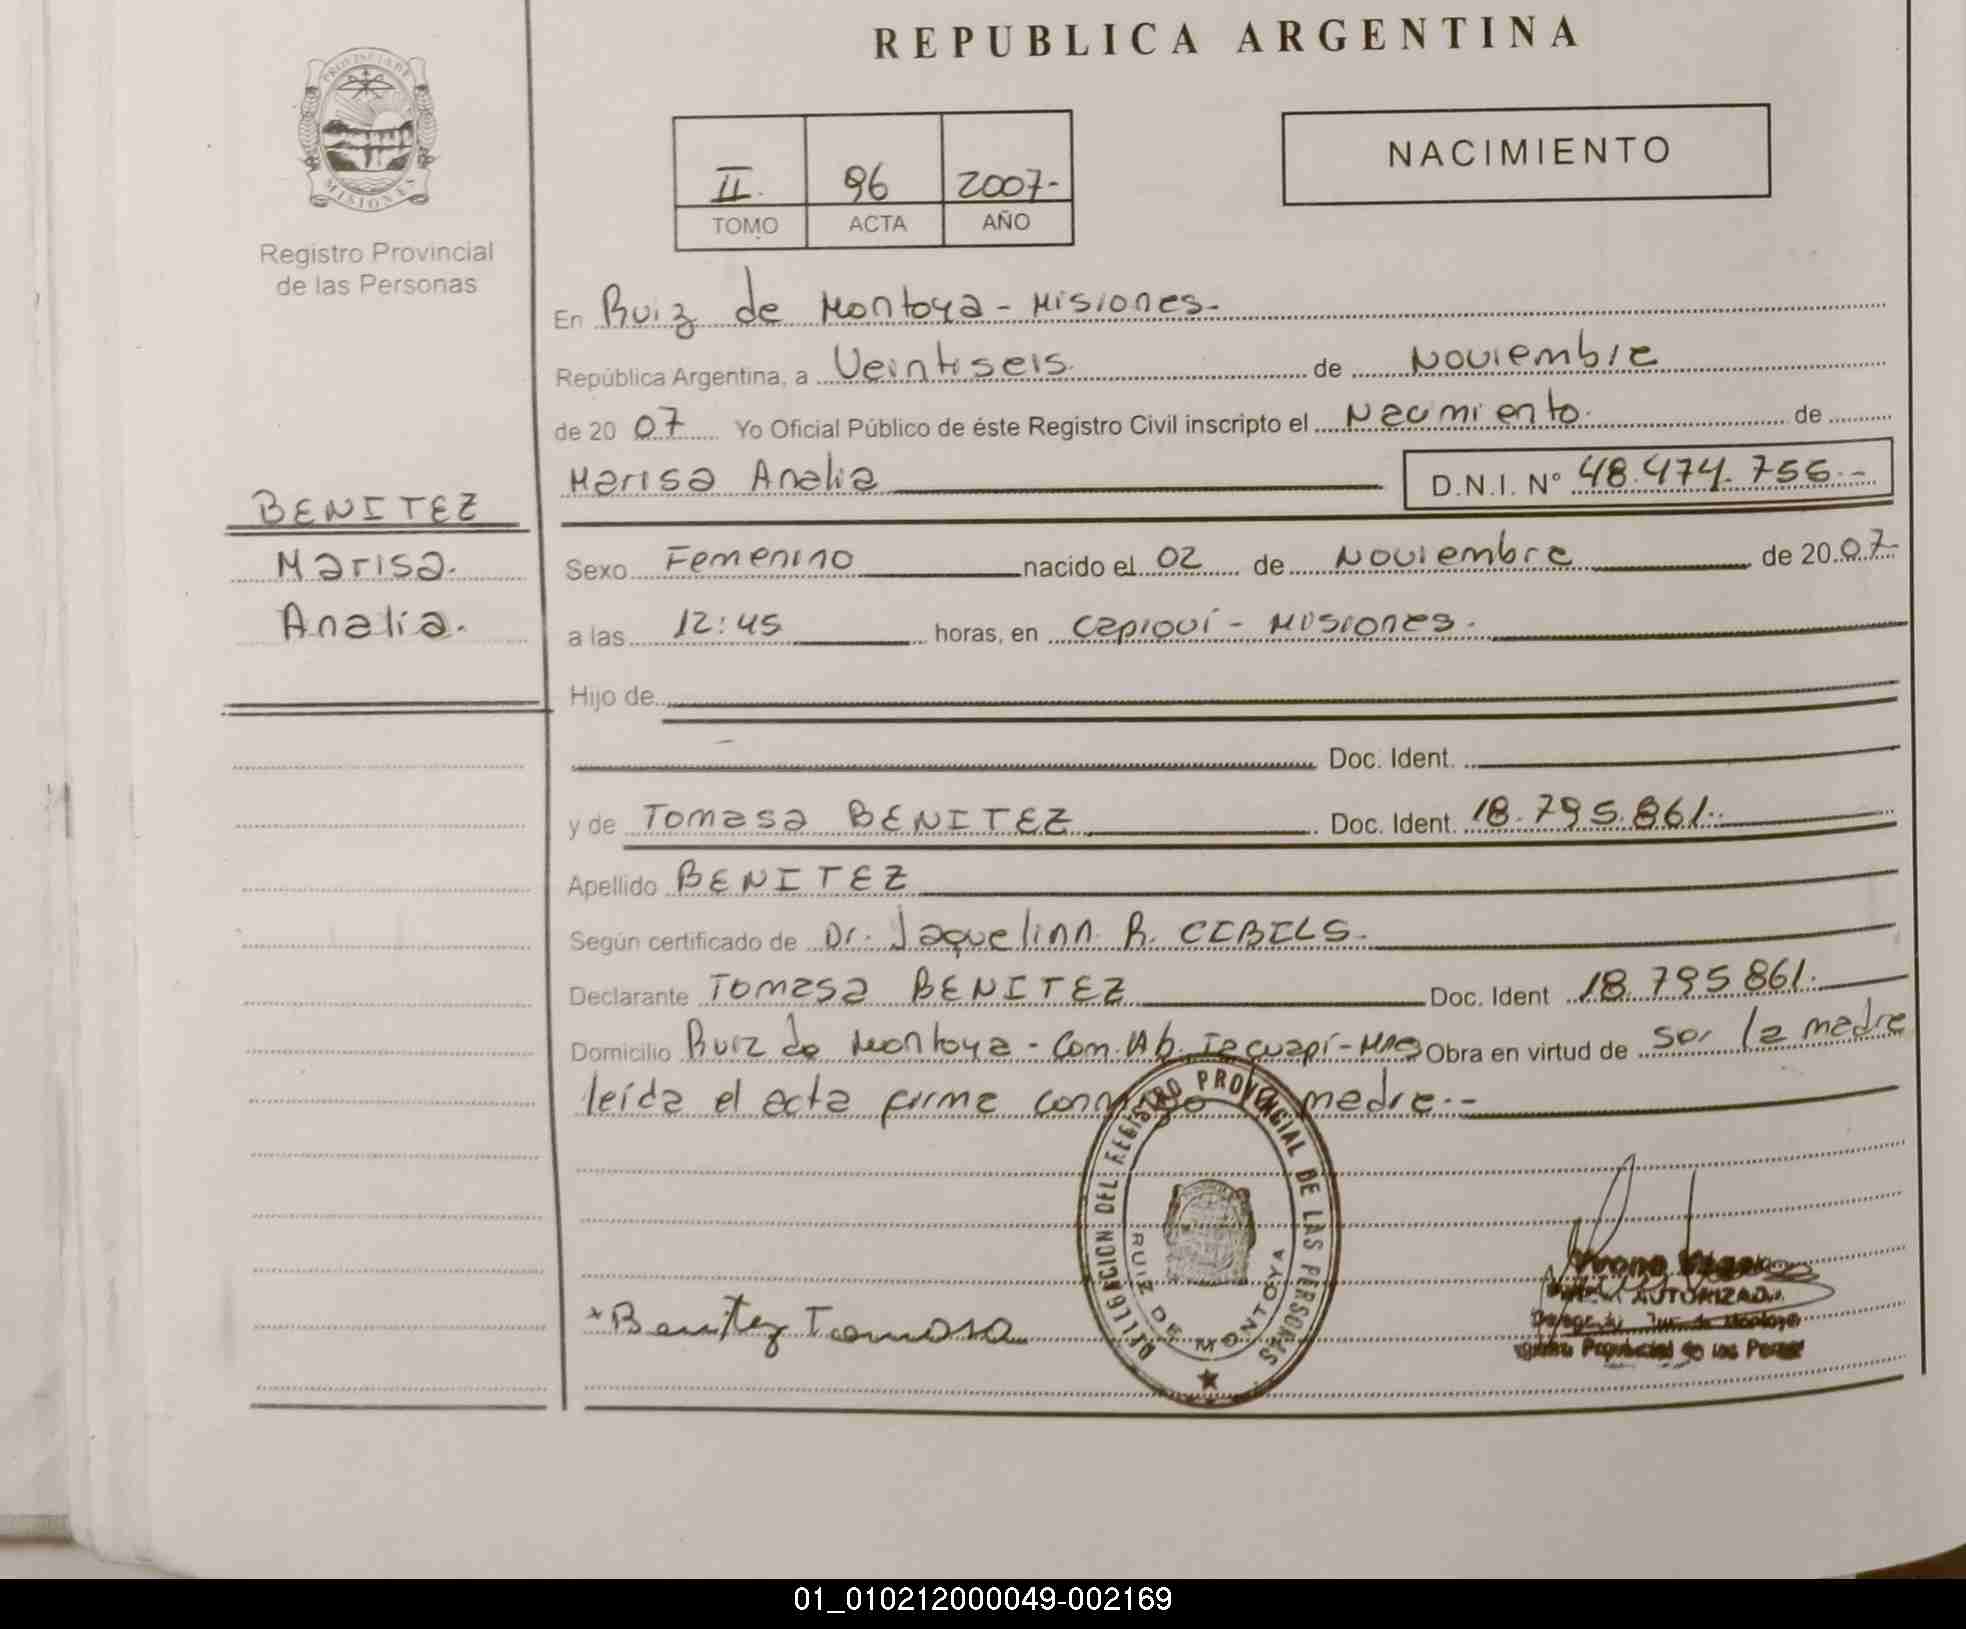 REPUBLICA ARGENTINA
PROVINCIA DE
MISIONES
Registro Provincial
de las Personas
II. 96 2007-
TOMO ACTA AÑO
NACIMIENTO
En Ruiz de Montoya - Misiones.
República Argentina, a Veintiseis. de Noviembre
de 20 07 Yo Oficial Público de éste Registro Civil inscripto el Nacimiento. de
Marisa Analia D.N.I. Nº 48.474.756.-
BENITEZ
Marisa.
Analía.
Sexo Femenino nacido el 02 de Noviembre de 20 07-
a las 12:45 horas, en Capioví - Misiones.
Hijo de
Doc. Ident.
y de Tomasa BENITEZ Doc. Ident. 18.795.861.
Apellido BENITEZ
Según certificado de Dr. Jaquelinn R. CIBILS.
Declarante TOMASA BENITEZ Doc. Ident 18.795 861.
Domicilio Ruiz de Montoya - Com. Ab. Tacuapí - Obra en virtud de ser la madre
leída el acta firma conmigo madre.-
DELEGACION DEL REGISTRO PROVINCIAL DE LAS PERSONAS
RUIZ DE MONTOYA
*Benitez Tomasa
AUTORIZADA
Provincial de las
01_010212000049-002169